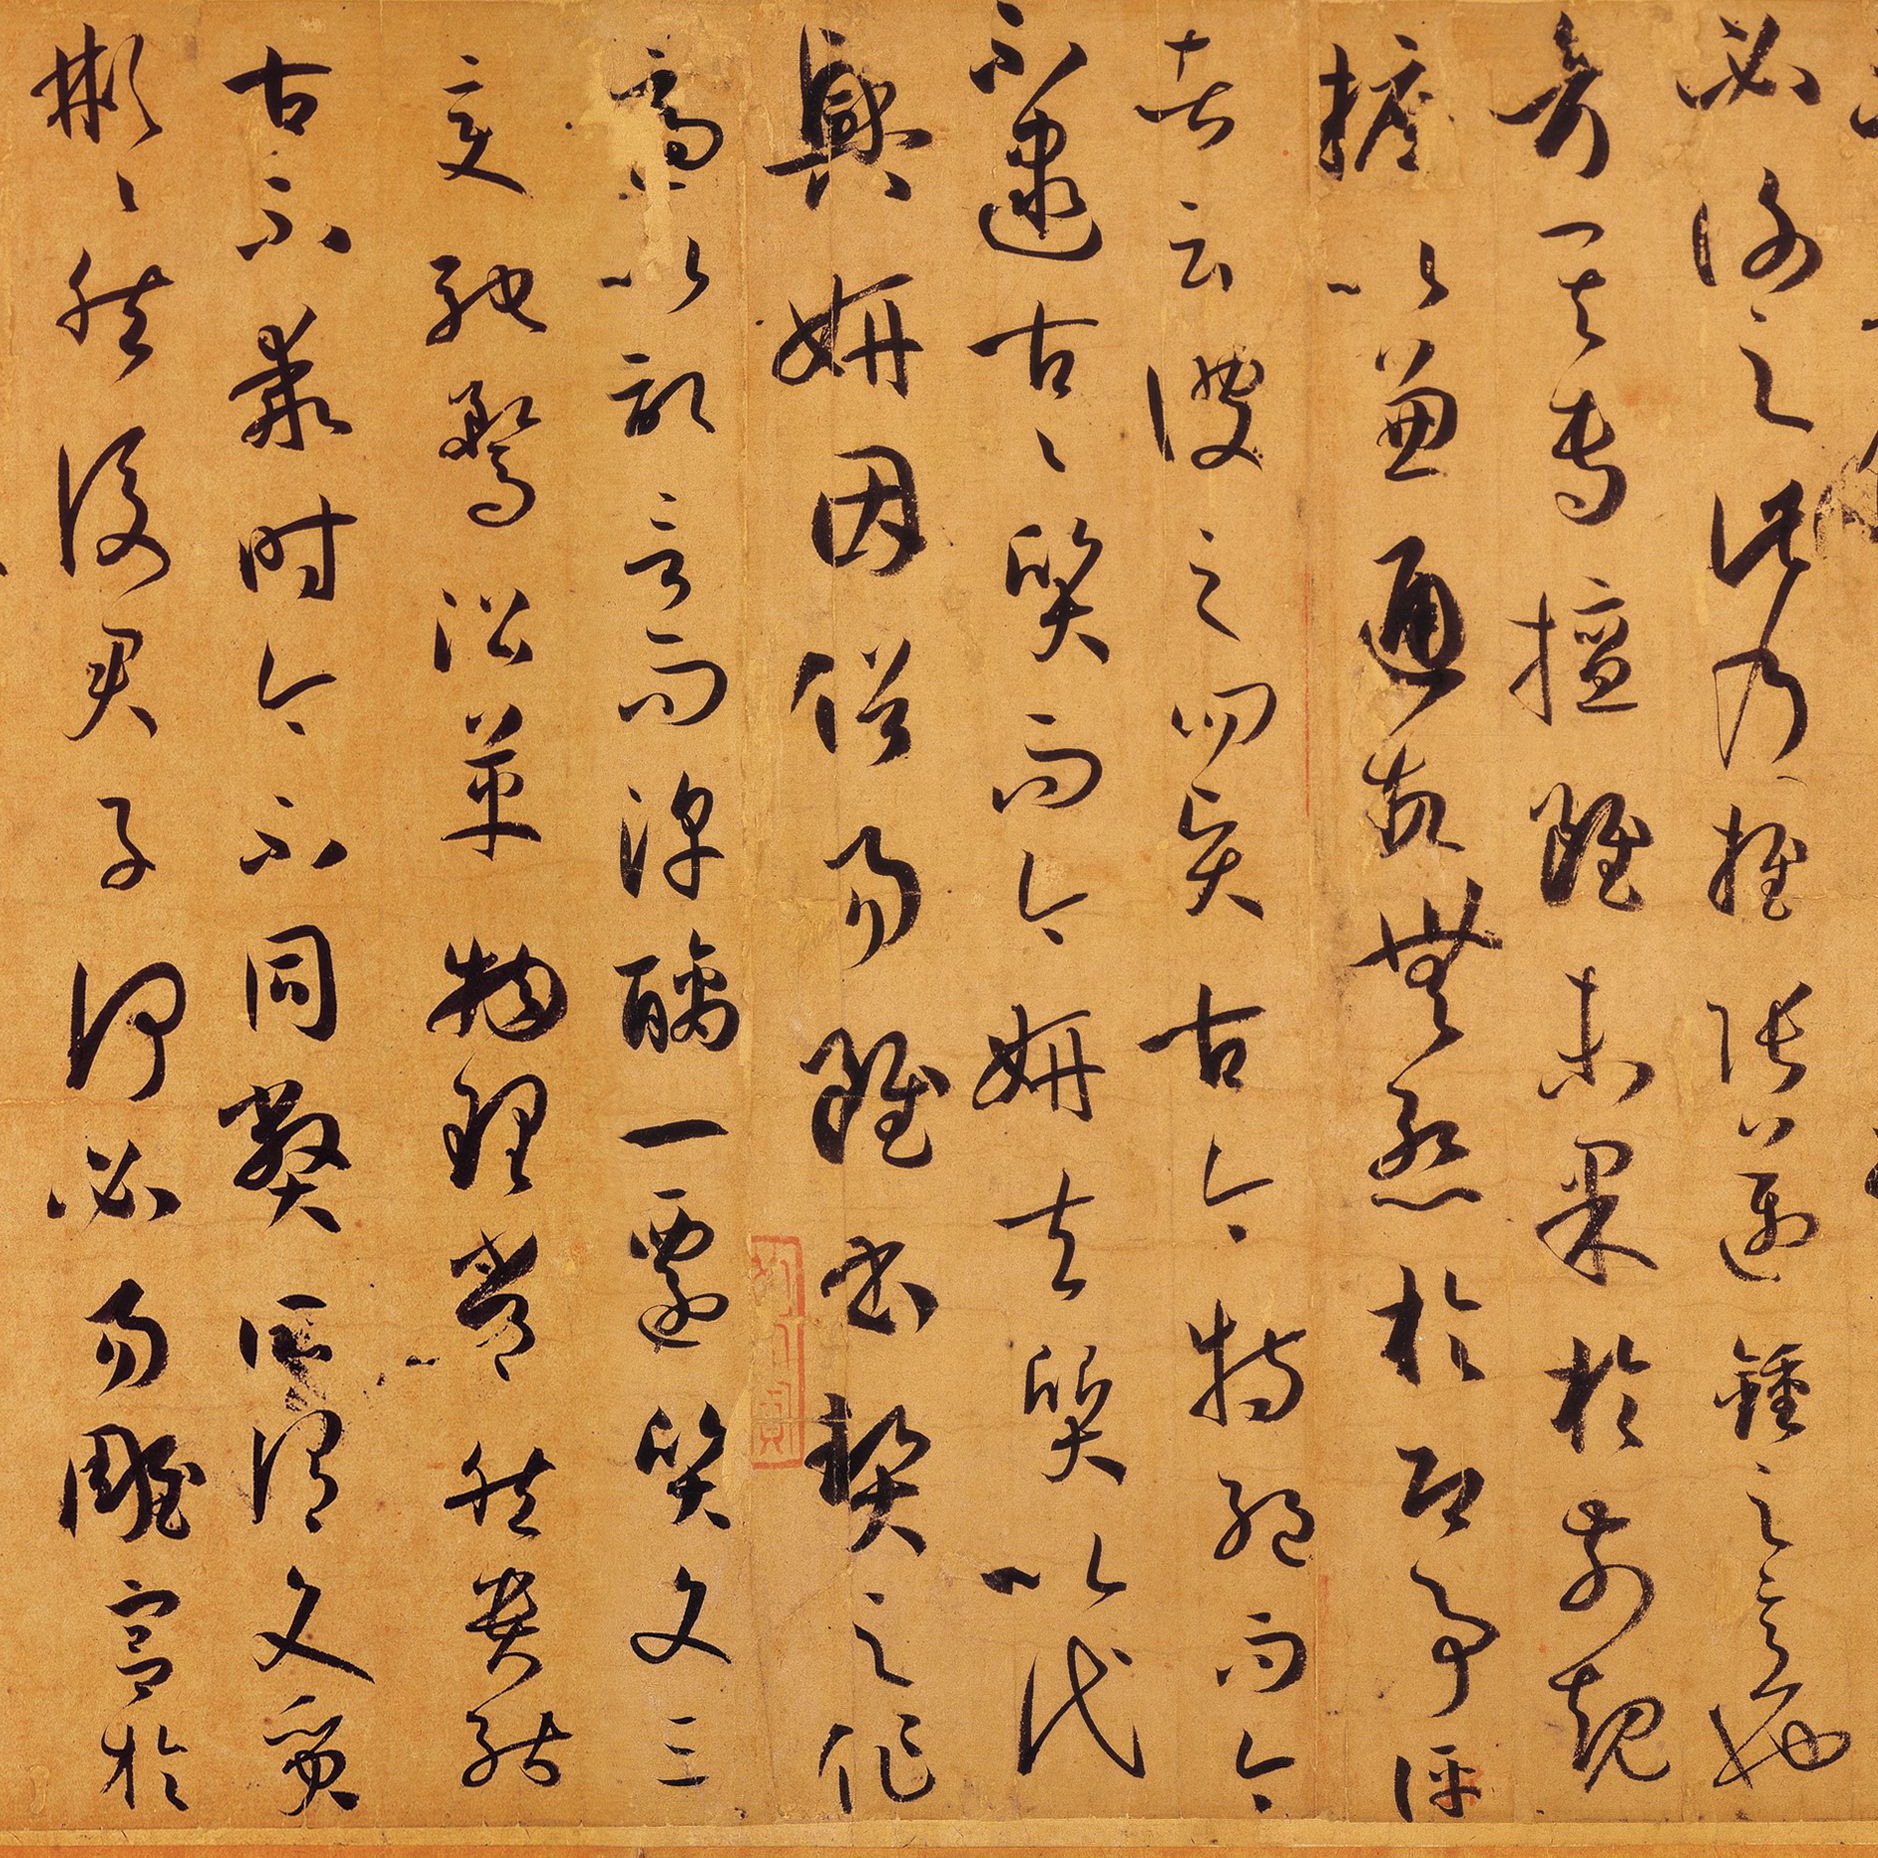 必謝之此乃推張邁鍾之意也
考其專擅雖未果於前規
摭以兼通故無慚於即事評
者云彼之四賢古今特絕而今
不逮古〻質而今妍夫質以代
興妍因俗易雖書契之作
適以記言而淳醨一遷質文三
變馳騖沿革物理常然貴能
古不乖時今不同弊所謂文質
彬〻然後君子何必易雕宮於